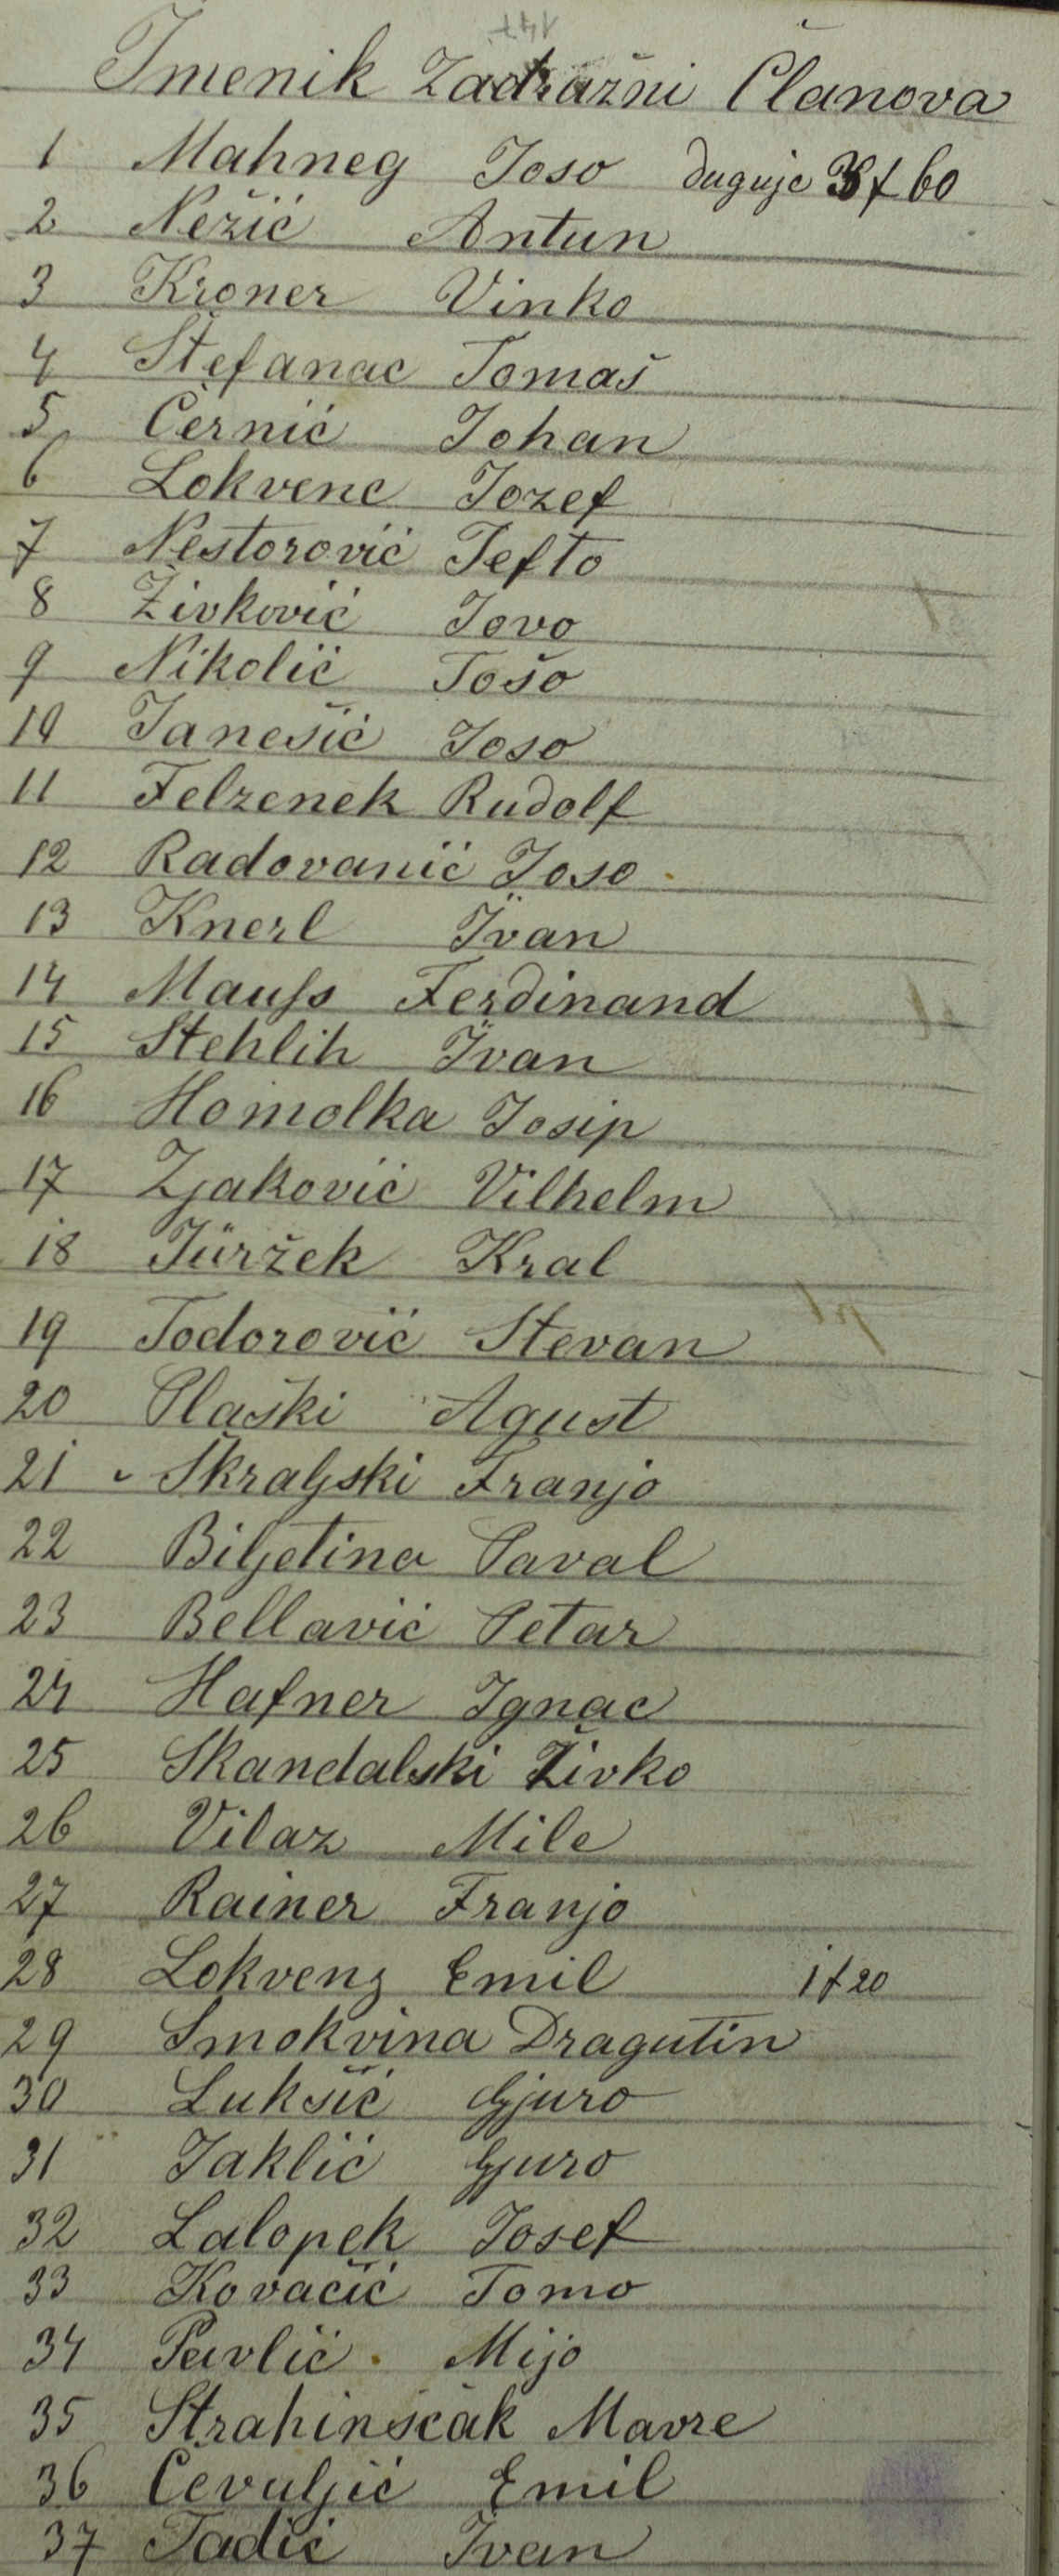 Imenik Zadražni Članova
1 Mahneg Joso duguje 3 f 60
2 Nežić Antun
3 Kroner Vinko
4 Štefanac Tomaš
5 Černić Johan
6 Lokvenc Jozef
7 Nestorović Jefto
8 Živković Jovo
9 Nikolić Tošo
10 Janešić Joso
11 Felzenek Rudolf
12 Radovanić Joso
13 Knerl Ivan
14 Mauſs Ferdinand
15 Stehlih Ivan
16 Homolka Josip
17 Zjaković Vilhelm
18 Jüržek Kral
19 Todorović Stevan
20 Plaški Agust
21 Škraljski Franjo
22 Biljetina Paval
23 Bellavić Petar
24 Hafner Ignac
25 Skandalski Živko
26 Vilaz Mile
27 Rainer Franjo
28 Lokvenz Emil 1 f 20
29 Smokvina Dragutin
30 Lukšić Gjuro
31 Jaklić Gjuro
32 Lalopek Josef
33 Kovačić Tomo
34 Pavlić Mijo
35 Strahinščak Mavre
36 Čevuljić Emil
37 Tadić Ivan